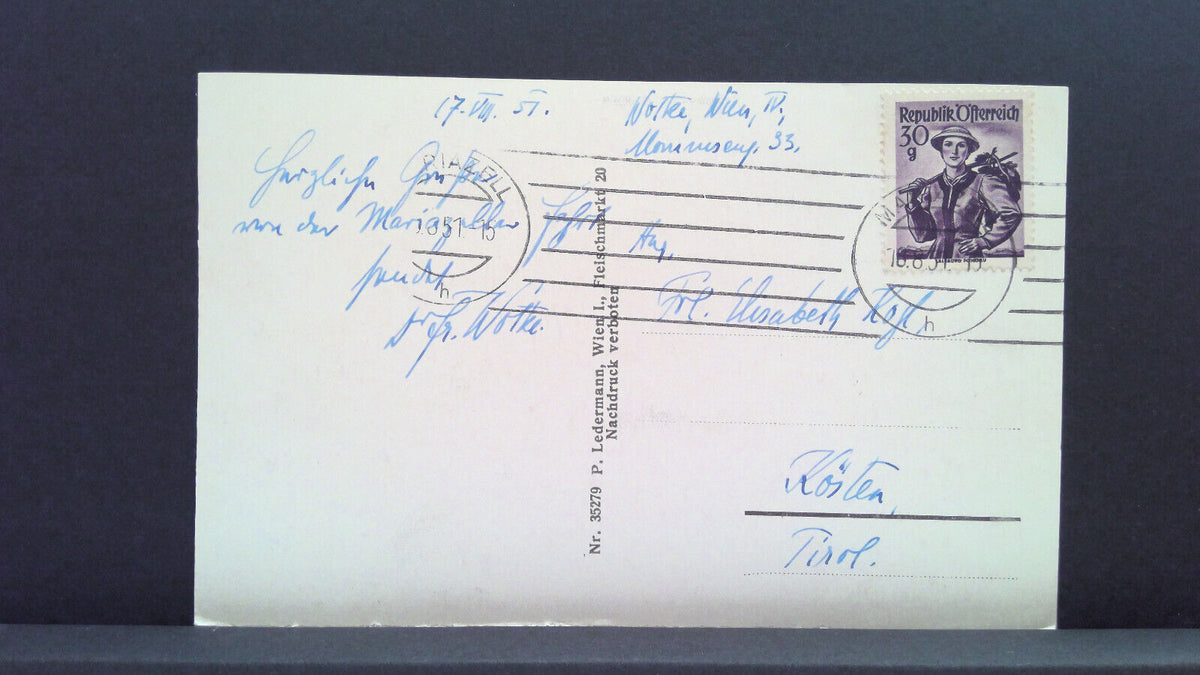 17. VIII. 51.
Herzliche Grüße
von der Mariazeller
sendet
Dr Fr. Wotke.
Wotke, Wien, IV,
33.
Frl. Elisabeth
Kösten,
Tirol.
Nr. 35279 P. Ledermann, Wien I., Fleischmarkt 20
Nachdruck verboten
Republik Österreich
30
g
RIAZELL
8 51-15
h
MA
18.8.51-15
h